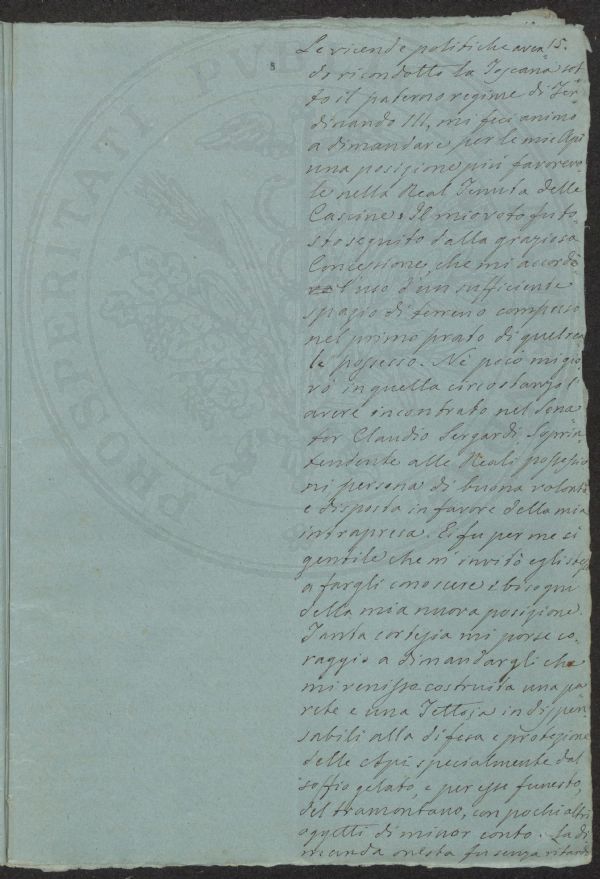 15.
Le vicende politiche avea
do ricondotto la Toscana sot
to il paterno regime di Fer
dinando III, mi feci animo
a dimandare per le mie Api
una posizione più favorevo
le nella Real Tenuta delle
Cascine. Il mio voto fu to
sto seguito dalla graziosa
Concessione, che mi accordò
l'uso d'un sufficiente
spazio di terreno compreso
nel primo prato di quel rea
le possesso. Nè poco mi gio
vò in quella circostanza l'
avere incontrato nel Sena
tor Claudio Sergardi Soprin
tendente alle Reali possessio
ni persona di buona volontà
e disposta in favore della mia
intrapresa. Ei fu per me sì
gentile che m'invitò egli stesso
a fargli conoscere i bisogni
della mia nuova posizione.
Tanta cortesia mi porse co
raggio a dimandargli che
mi venisse costruita una pa
rete e una Tettoja indispen
sabili alla difesa e protezione
delle Api specialmente dal
soffio gelato, e per esse funesto,
del tramontano, con pochi altri
oggetti di minor conto. La di
manda onesta fu senza ritardo
PROSPERITATI PVB